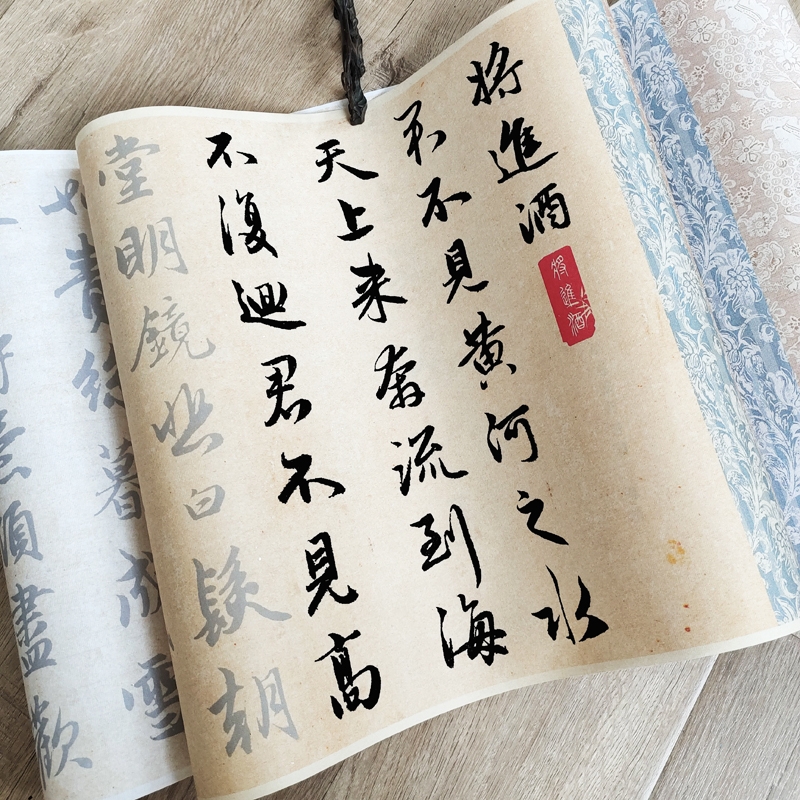 將進酒
將進酒
君不見黃河之水
天上来奔流到海
不復迴君不見高
堂明鏡悲白髮朝
如青絲暮成雪
得意須盡歡